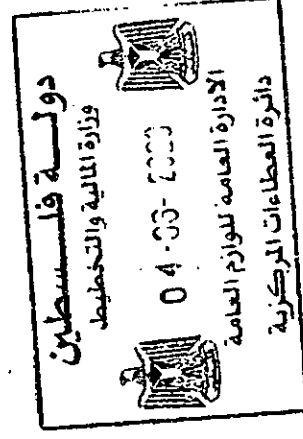 دولة فلسطين
وزارة المالية والتخطيط
04
الادارة العامة للوازم العامة
دائرة العطاءات المركزية